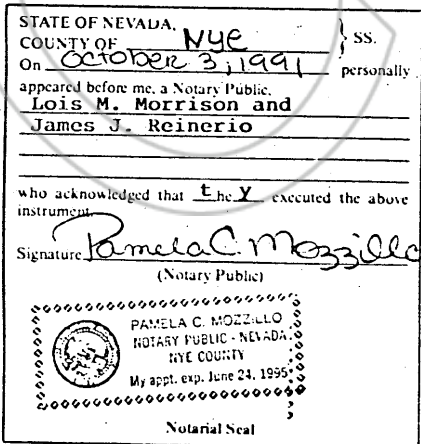 STATE OF NEVADA,
COUNTY OF Nye } SS.
On October 3, 1991 personally
appeared before me, a Notary Public,
Lois M. Morrison and
James J. Reinerio
who acknowledged that t he y executed the above
instrument.
Signature Pamela C. Mozzillo
(Notary Public)
PAMELA C. MOZZILLO
NOTARY PUBLIC - NEVADA
NYE COUNTY
My appt. exp. June 24, 1995
Notarial Seal